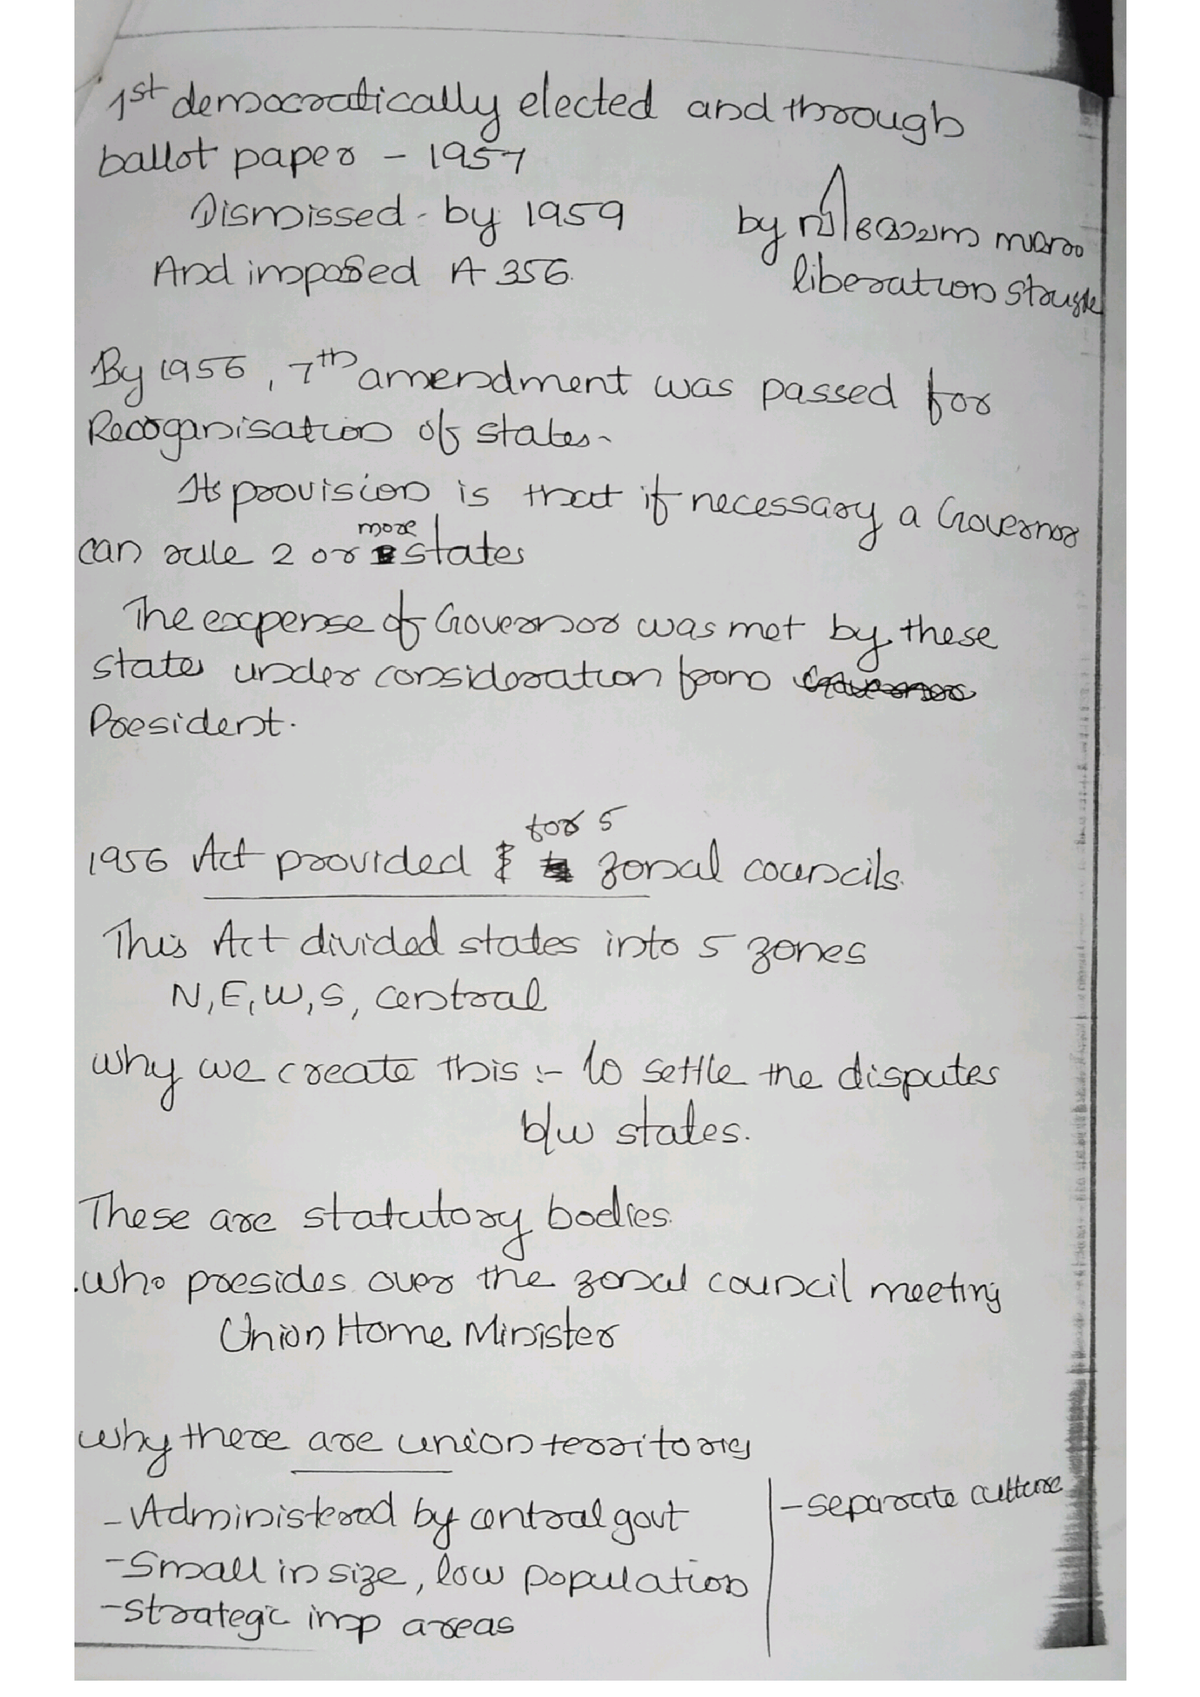 1st democratically elected and through
ballot paper - 1957
Dismissed - by 1959
And imposed A 356.
by വിമോചന സമരം
liberation struggle
By 1956, 7th amendment was passed for
Reorganisation of states-
Its provision is that if necessary a Governor
can rule 2 or more states
The expense of Governor was met by these
states under consideration from
President.
1956 Act provided for 5 zonal councils.
This Act divided states into 5 zones
N, E, W, S, central
why we create this :- to settle the disputes
b/w states.
These are statutory bodies.
who presides over the zonal council meeting
Union Home Minister
why there are union territories
- Administered by central govt
- Small in size, low population
- Strategic imp areas
- separate culture